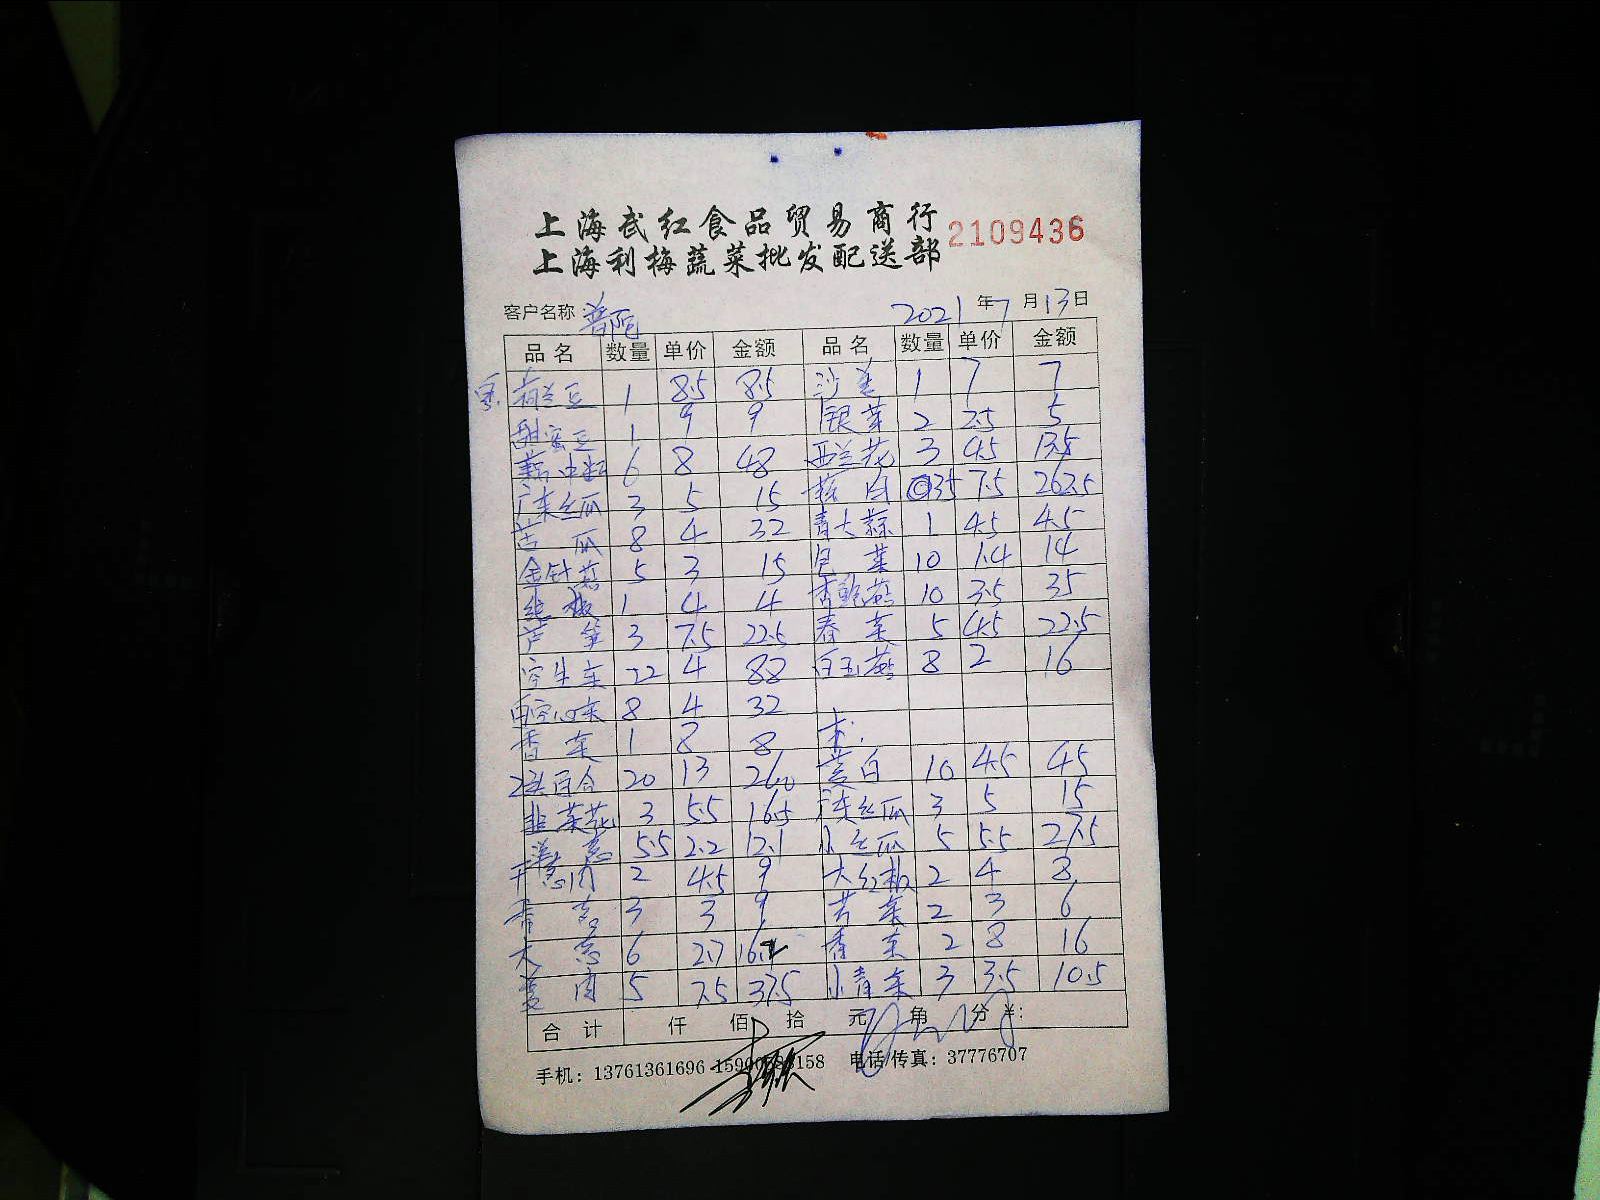 上海武红食品贸易商行 2109436
上海利梅蔬菜批发配送部
客户名称: 普陀 2021年7月13日
品名 数量 单价 金额 品名 数量 单价 金额
荷兰豆 1 8.5 8.5 沙姜 1 7 7
甜蜜豆 1 9 9 银芽 2 2.5 5
6 8 48 西兰花 3 4.5 13.5
广东丝瓜 3 5 15 35 7.5 262.5
苦瓜 8 4 32 青大蒜 1 4.5 4.5
金针菇 5 3 15 10 1.4 14
1 4 4 香鲍菇 10 3.5 35
芦笋 3 7.5 22.5 春菜 5 4.5 22.5
22 4 88 白玉菇 8 2 16
白空心菜 8 4 32
香菜 1 8 8 本.
2头百合 20 13 260 茭白 10 4.5 45
韭菜花 3 5.5 16.5 广东丝瓜 3 5 15
洋葱 5.5 2.2 12.1 小丝瓜 5 5.5 27.5
干葱肉 2 4.5 9 大红椒 2 4 8
3 3 9 2 3 6
大葱 6 2.7 16.2 香菜 2 8 16
姜肉 5 7.5 37.5 小青菜 3 3.5 10.5
合计 仟 佰 拾 元 角 分 ¥:
手机: 13761361696 电话/传真: 37776707